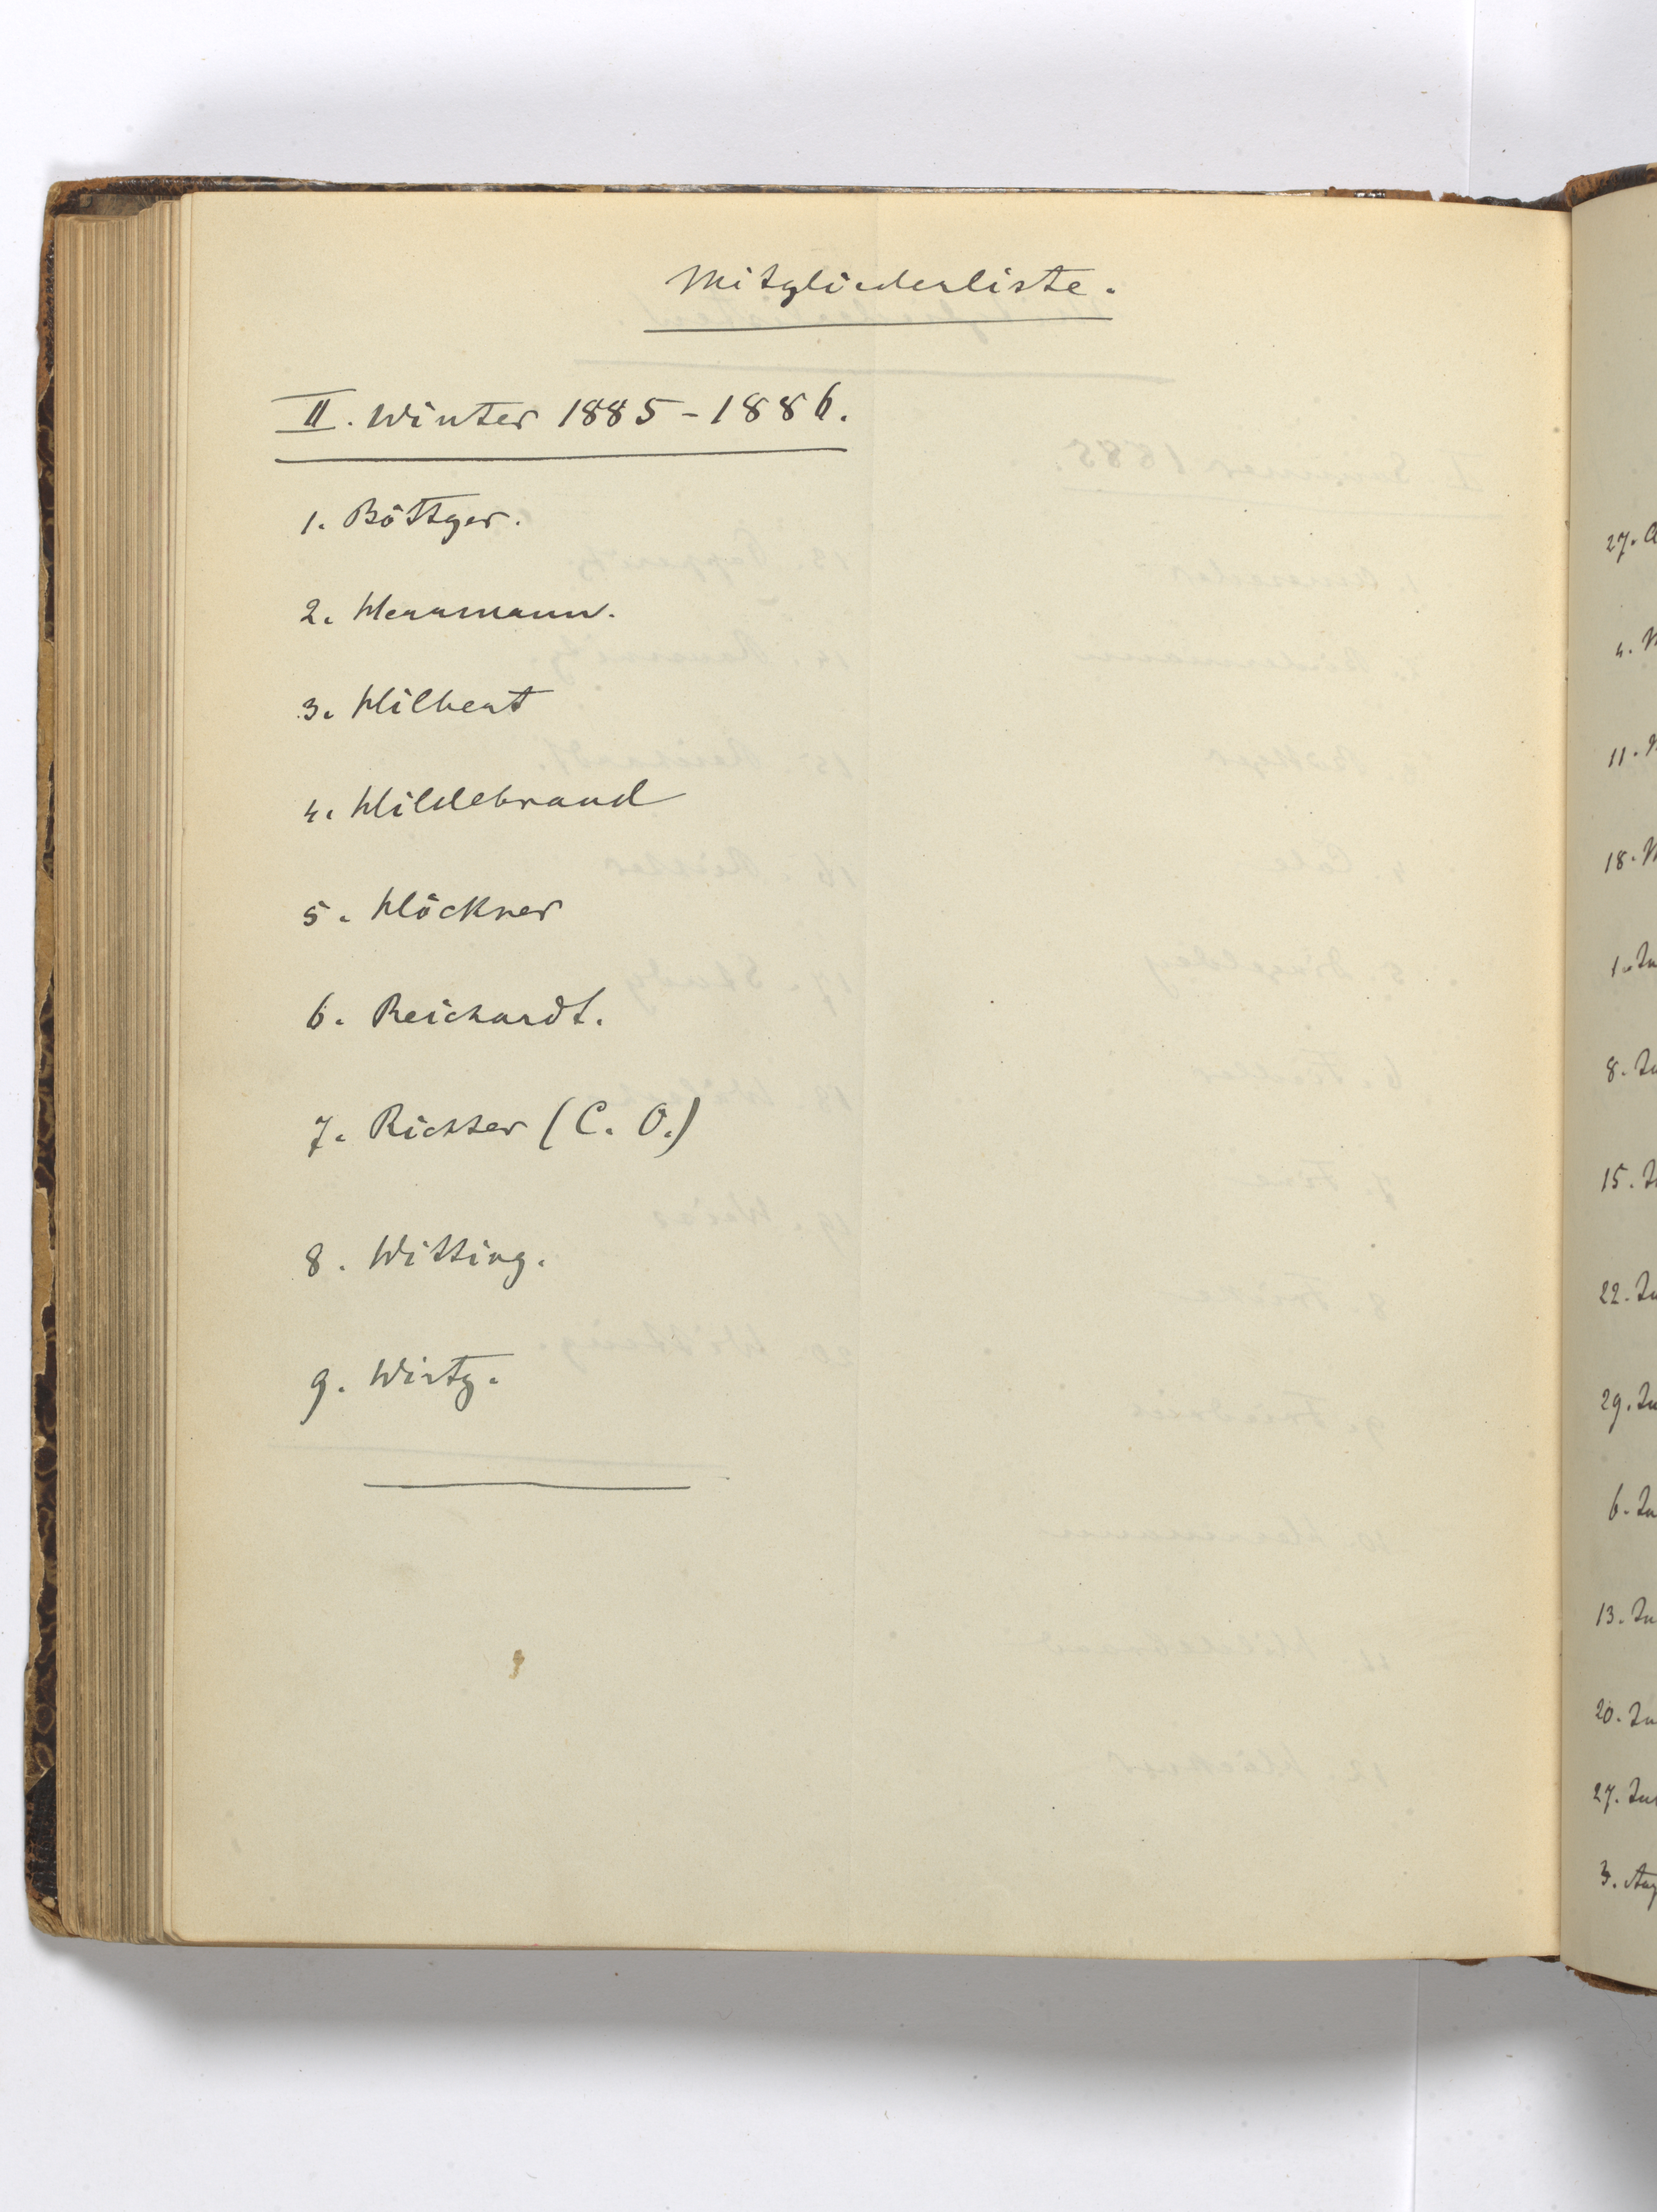 Mitgliederliste.
II. Winter 1885-1886.
1. Böttger.
2. Herrmann.
3. Hilbert
4. Hildebrand
5. Höckner
6. Reichardt.
7. Richter (C. O.)
8. Witting.
9. Wirtz.
27.
4.
11.
18.
1.
8.
15.
22.
29.
6.
13.
20.
27.
3.